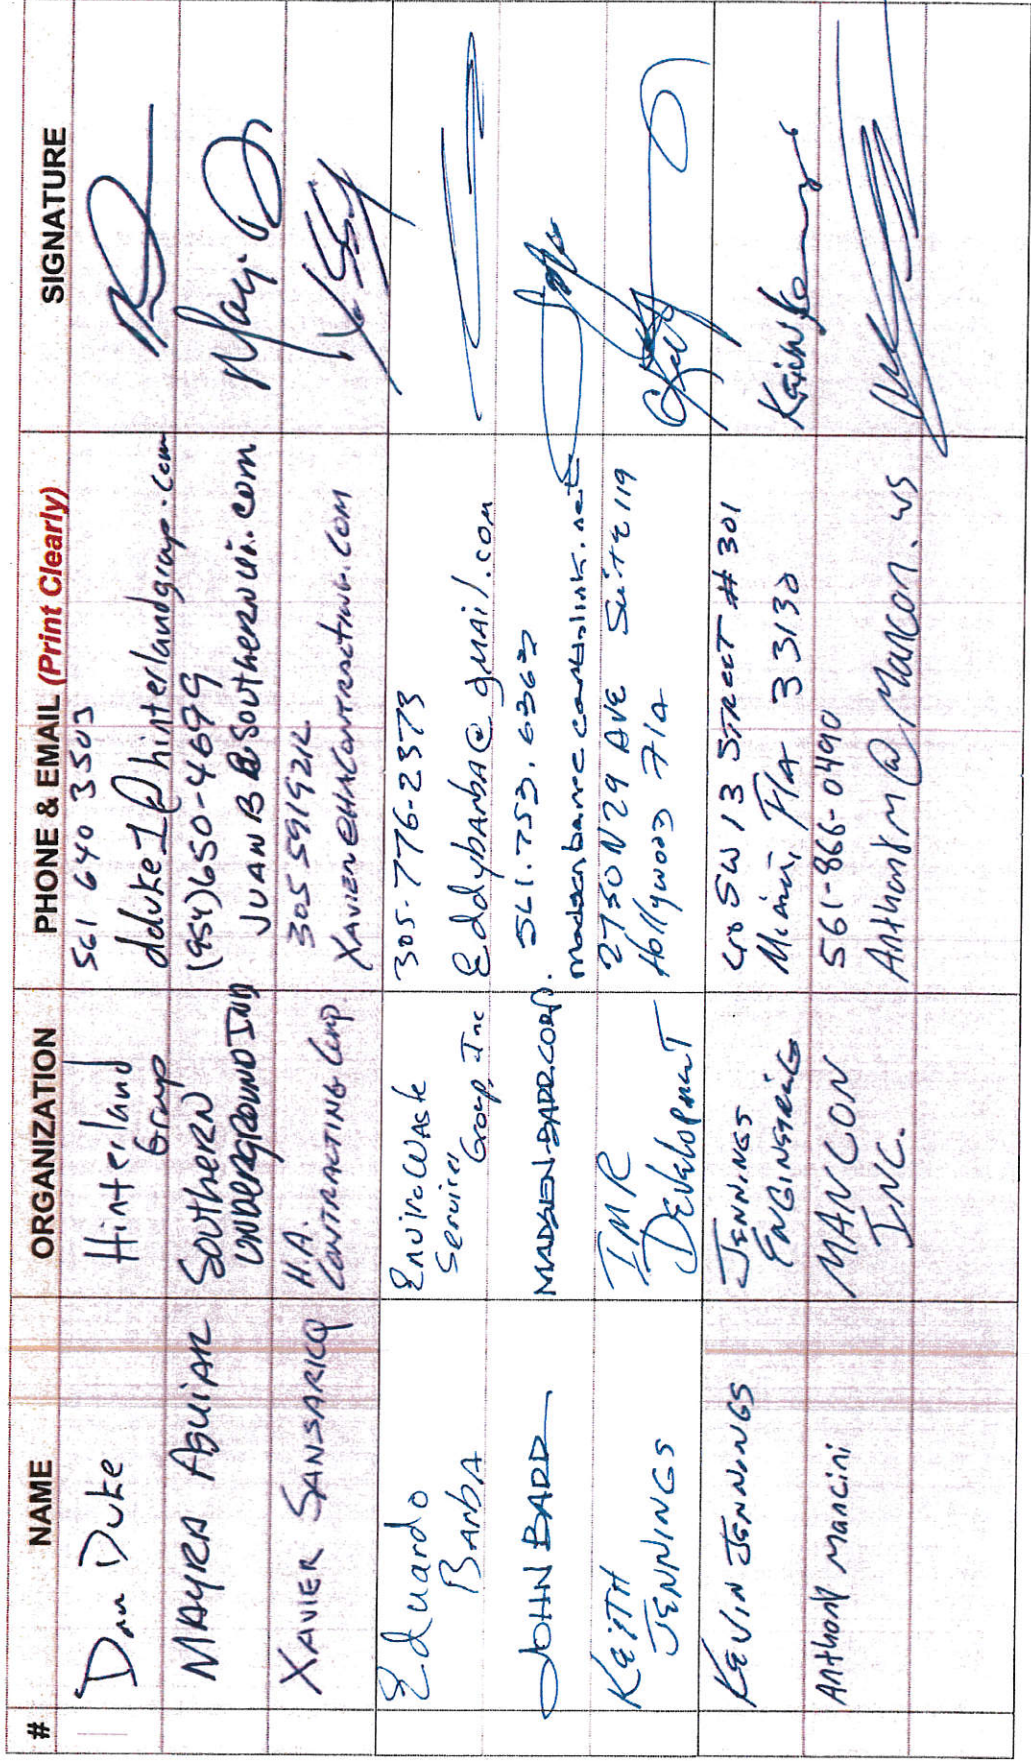 # NAME ORGANIZATION PHONE & EMAIL (Print Clearly) SIGNATURE
Dan Duke
Hinterland
Group
561 640 3503
dduke1@hinterlandgroup.com
MAYRA AGUIAR
SOUTHERN
UNDERGROUND IND
(954)650-4699
JUAN B@SOUTHERNUI.COM
XAVIER SANSARICQ
H.A.
CONTRACTING Corp
305 5919212
XAVIER@HACONTRACTING.COM
Eduardo
BANbA
EnviroWaste
Services
Group, Inc
305-776-2373
Eddybanba@gmail.com
JOHN BARR
MADSEN-BARR CORP.
561.753.6363
KEITH
JENNINGS
IMR
Development
2750 N 29 AVE Suite 119
Hollywood Fla
KEVIN JENNINGS
JENNINGS
ENGINEERING
40 SW 13 STREET # 301
Miami, Fla 33130
Anthony Mancini
MANCON
INC.
561-866-0490
AnthonyM@Mancon.ws